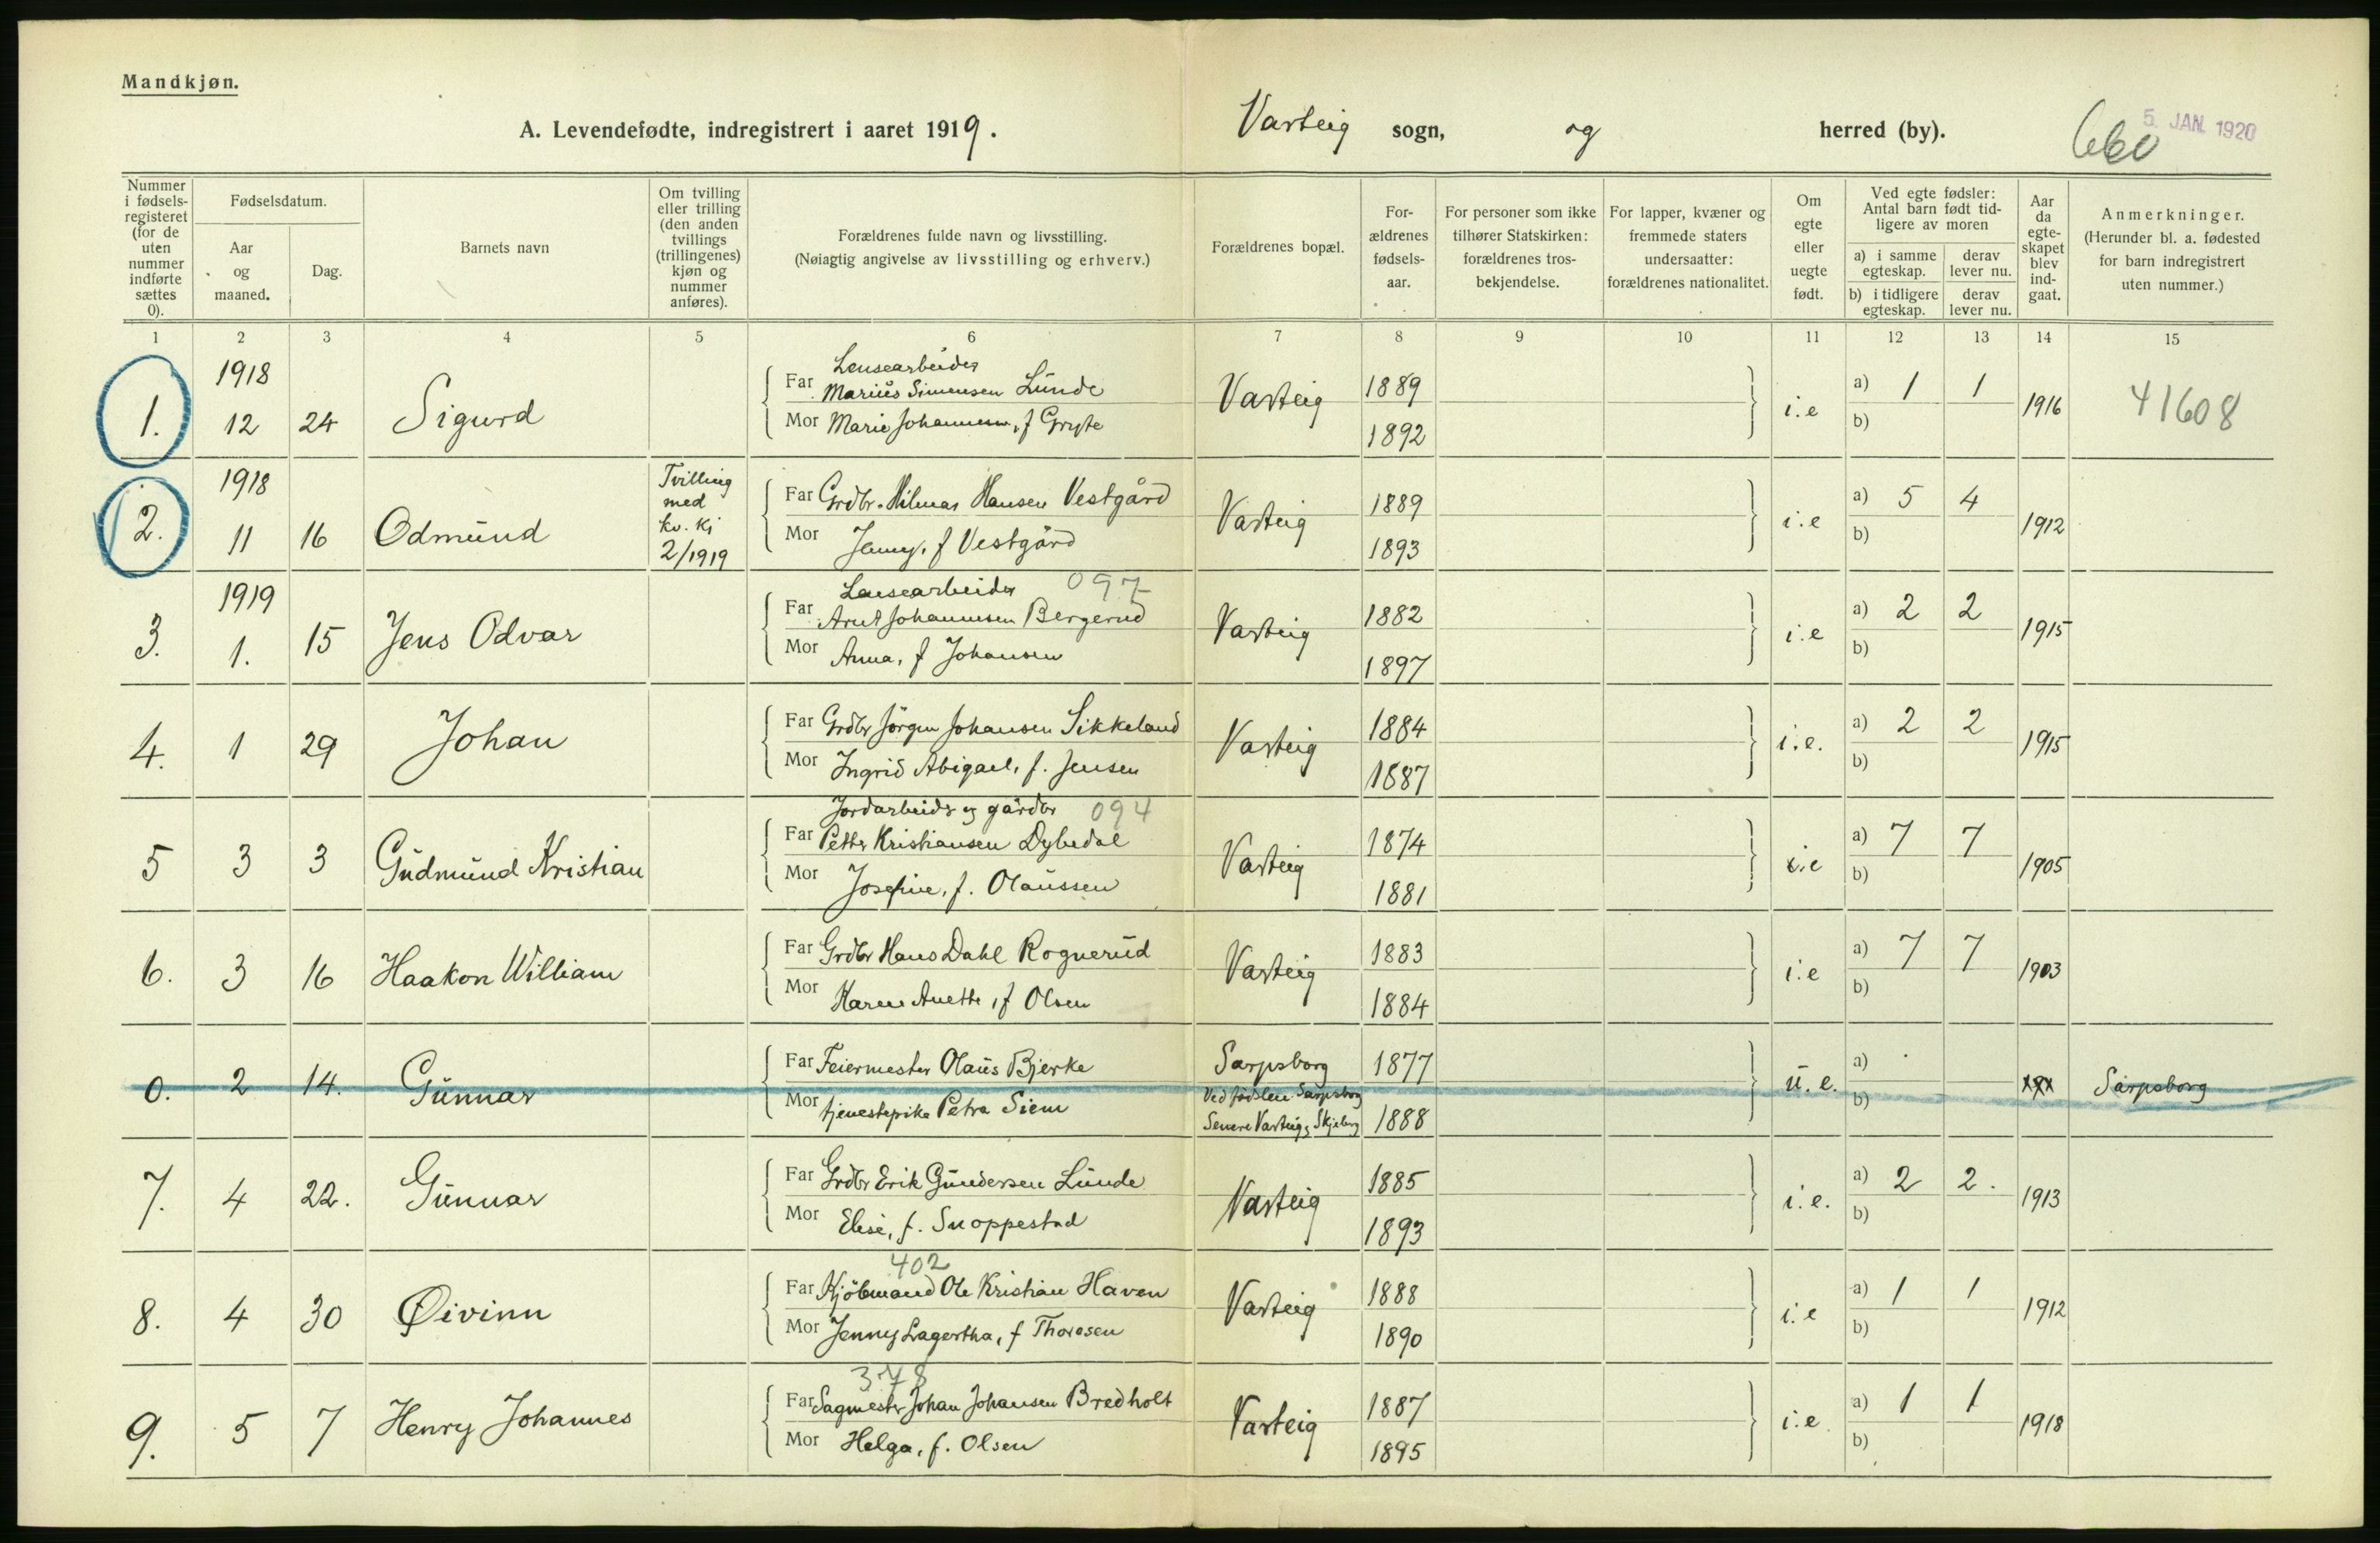 Mandkjøn.
A. Levendefødte, indregistrert i aaret 1919.
Varteig sogn, og herred (by).
660
5. JAN. 1920
Nummer i fødsels-registeret (for de uten nummer indførte sættes 0).
Fødselsdatum.
Aar og maaned.
Dag.
Barnets navn
Om tvilling eller trilling (den anden tvillings (trillingenes) kjøn og nummer anføres).
Forældrenes fulde navn og livsstilling.
(Nøiagtig angivelse av livsstilling og erhverv.)
Forældrenes bopæl.
For-ældrenes fødsels-aar.
For personer som ikke tilhører Statskirken: forældrenes tros-bekjendelse.
For lapper, kvæner og fremmede staters undersaatter: forældrenes nationalitet.
Om egte eller uegte født.
Ved egte fødsler: Antal barn født tid-ligere av moren
a) i samme egteskap.
derav lever nu.
b) i tidligere egteskap.
derav lever nu.
Aar da egte-skapet blev ind-gaat.
Anmerkninger.
(Herunder bl. a. fødested for barn indregistrert uten nummer.)
1 2 3 4 5 6 7 8 9 10 11 12 13 14 15
1. 1918 12 24 Sigurd
Lensearbeider
Far Marius Simensen Lunde Varteig 1889 i.e a) 1 1 1916 41608
Mor Marie Johannesen, f Gryte 1892 b)
2. 1918 11 16 Odmund Tvilling med kv. kj 2/1919
Far Grdbr. Hilmar Hansen Vestgård Varteig 1889 i.e a) 5 4 1912
Mor Jenny, f Vestgård 1893 b)
3. 1919 1. 15 Jens Odvar
Lensearbeider 097
Far Arnt Johannesen Bergerud Varteig 1882 i.e a) 2 2 1915
Mor Anna, f Johansen 1897 b)
4. 1 29 Johan
Far Grdbr Jörgen Johansen Sikkeland Varteig 1884 i.e. a) 2 2 1915
Mor Ingrid Abigael, f. Jensen 1887 b)
5 3 3 Gudmund Kristian
Jordarbeider og gårdbr 094
Far Petter Kristiansen Dybedal Varteig 1874 i.e a) 7 7 1905
Mor Josefine, f. Olaussen 1881 b)
6. 3 16 Haakon William
Far Grdbr Hans Dahl Rognerud Varteig 1883 i.e a) 7 7 1903
Mor Karen Anette, f Olsen 1884 b)
0. 2 14. Gunnar
Far Feiermester Olaus Bjerke Sarpsborg 1877 u.e. a) xxx Sarpsborg
Mor tjenestepike Petra Siem Ved fødslen Sarpsborg
Senere Varteig, Skjeberg 1888 b)
7. 4 22. Gunnar
Far Grdbr Erik Gundersen Lunde Varteig 1885 i.e. a) 2 2. 1913
Mor Elise, f. Snoppestad 1893 b)
8. 4 30 Øivinn
402
Far Kjöbmand Ole Kristian Haven Varteig 1888 i.e a) 1 1 1912
Mor Jenny Lagertha, f Thoresen 1890 b)
9. 5 7 Henry Johannes
378
Far Sagmester Johan Johansen Bredholt Varteig 1887 i.e. a) 1 1 1918
Mor Helga, f. Olsen 1895 b)